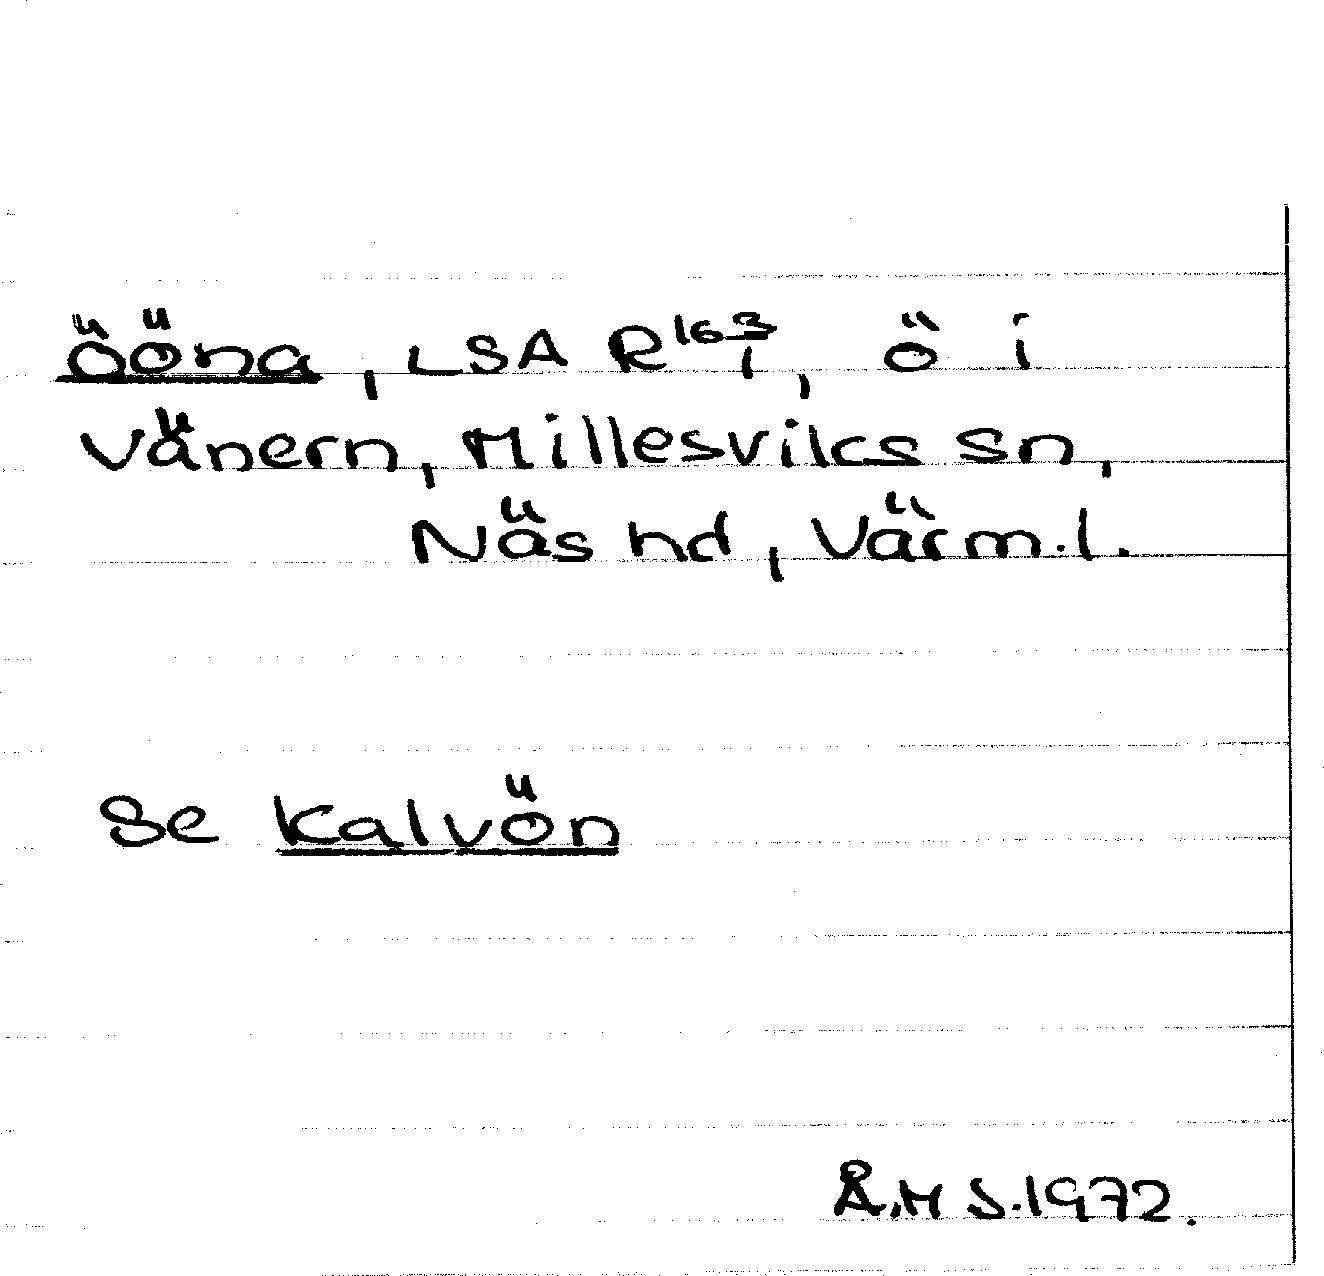 Ööna, LSA R 163/1, ö i
Vänern, Millesviks sn,
Näs hd, Värml.
Se Kalvön
Å.M S. 1972.